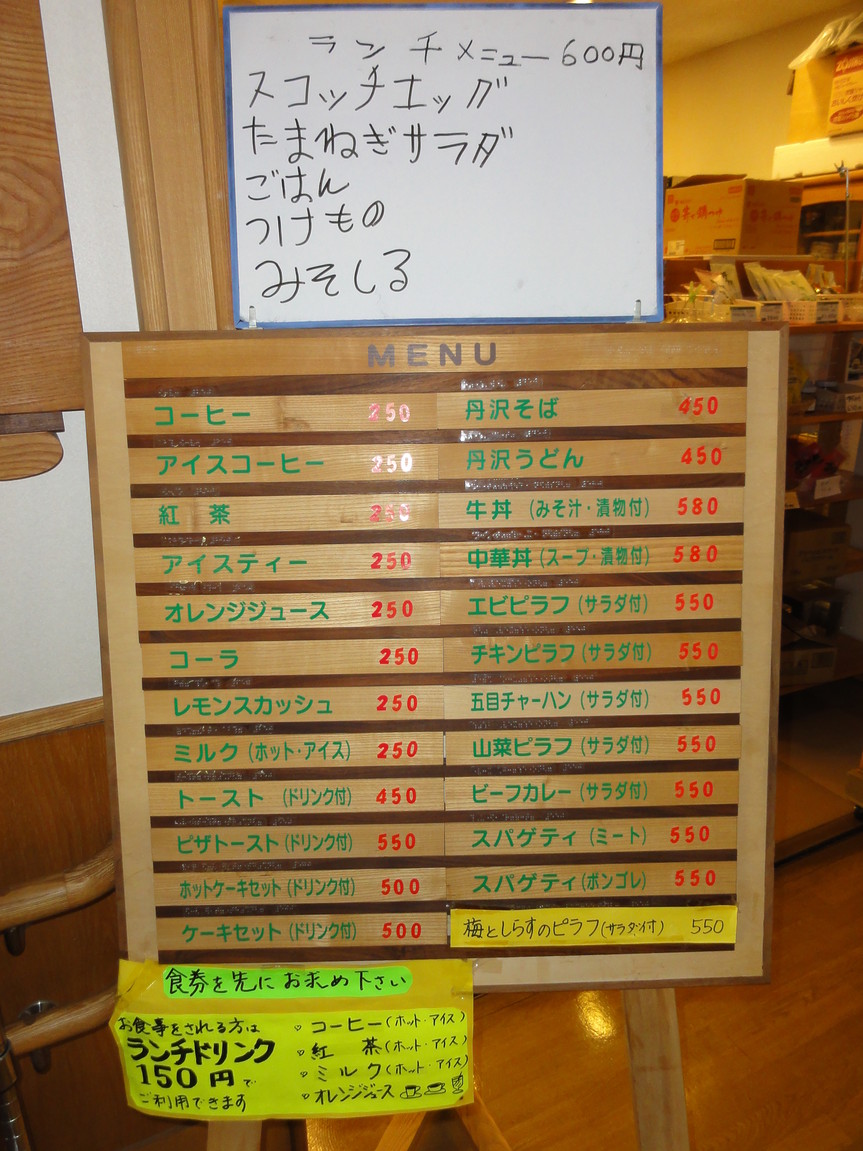 ランチメニュー 600円
スコッチエッグ
たまねぎサラダ
ごはん
つけもの
みそしる
MENU
コーヒー 250
アイスコーヒー 250
紅茶 250
アイスティー 250
オレンジジュース 250
コーラ 250
レモンスカッシュ 250
ミルク(ホット・アイス) 250
トースト (ドリンク付) 450
ピザトースト(ドリンク付) 550
ホットケーキセット(ドリンク付) 500
ケーキセット(ドリンク付) 500
丹沢そば 450
丹沢うどん 450
牛丼 (みそ汁・漬物付) 580
中華丼(スープ・漬物付) 580
エビピラフ(サラダ付) 550
チキンピラフ(サラダ付) 550
五目チャーハン(サラダ付) 550
山菜ピラフ(サラダ付) 550
ビーフカレー(サラダ付) 550
スパゲティ(ミート) 550
スパゲティ(ボンゴレ) 550
梅としらすのピラフ(サラダ付) 550
食券を先にお求め下さい
お食事をされる方は
ランチドリンク
150円で
ご利用できます
コーヒー(ホット・アイス)
紅茶(ホット・アイス)
ミルク(ホット・アイス)
オレンジジュース